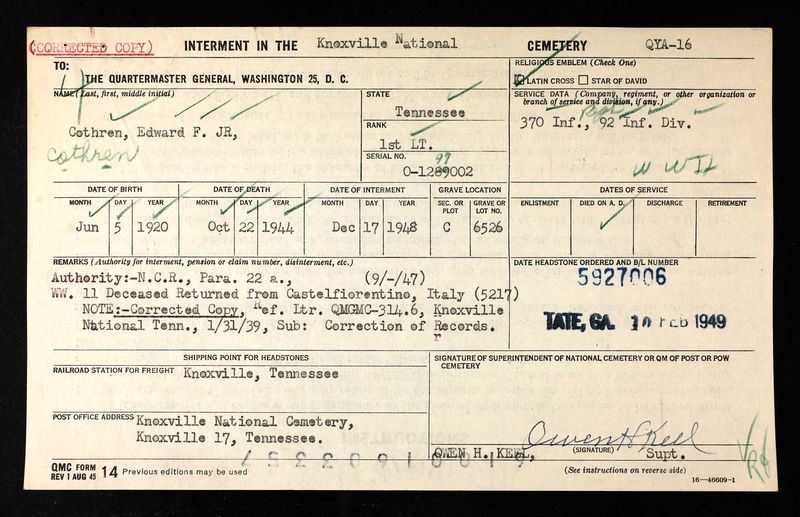 (CORRECTED COPY) INTERMENT IN THE Knoxville National CEMETERY QYA-16
TO:
THE QUARTERMASTER GENERAL, WASHINGTON 25, D. C.
RELIGIOUS EMBLEM (Check One)
LATIN CROSS STAR OF DAVID
NAME (Last, first, middle initial)
Cothren, Edward F. JR,
cothren
STATE
Tennessee
RANK
1st LT.
SERIAL NO.
97
O-1289002
SERVICE DATA (Company, regiment, or other organization or
branch of service and division, if any.)
370 Inf., 92 Inf. Div.
W WII
DATE OF BIRTH DATE OF DEATH DATE OF INTERMENT GRAVE LOCATION DATES OF SERVICE
MONTH DAY YEAR MONTH DAY YEAR MONTH DAY YEAR SEC. OR PLOT GRAVE OR LOT NO. ENLISTMENT DIED ON A. D. DISCHARGE RETIREMENT
Jun 5 1920 Oct 22 1944 Dec 17 1948 C 6526
REMARKS (Authority for interment, pension or claim number, disinterment, etc.)
Authority:-N.C.R., Para. 22 a., (9/-/47)
WW. 11 Deceased Returned from Castelfiorentino, Italy (5217)
NOTE:-Corrected Copy, Ref. Ltr. QMGMC-314.6, Knoxville
National Tenn., 1/31/39, Sub: Correction of Records.
r
DATE HEADSTONE ORDERED AND B/L NUMBER
5927006
TATE, GA. 10 FEB 1949
SHIPPING POINT FOR HEADSTONES
RAILROAD STATION FOR FREIGHT Knoxville, Tennessee
POST OFFICE ADDRESS Knoxville National Cemetery,
Knoxville 17, Tennessee.
SIGNATURE OF SUPERINTENDENT OF NATIONAL CEMETERY OR QM OF POST OR POW
CEMETERY
Owen H Keel
OWEN H. KEEL, (SIGNATURE) Supt.
QMC FORM
REV 1 AUG 45 14 Previous editions may be used
(See instructions on reverse side)
16—46609-1